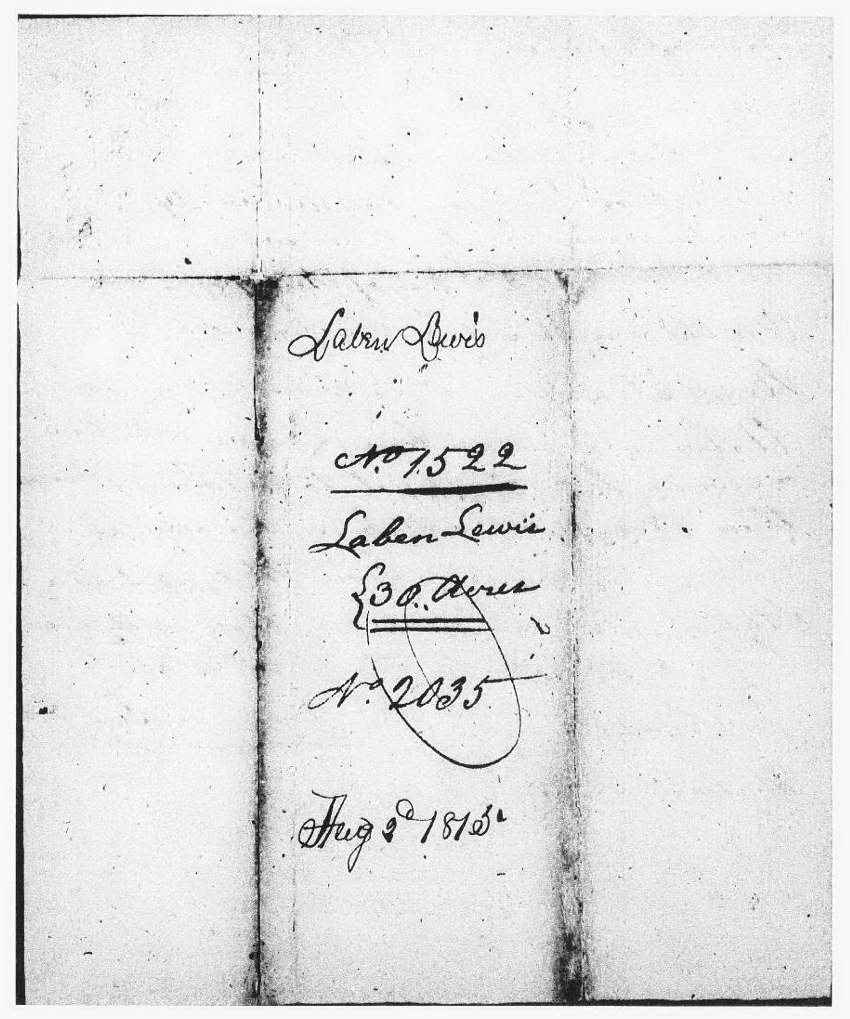 Laben Lewis
No 1522
Laben Lewis
30 Acres
No 2035
Aug 2d 1813